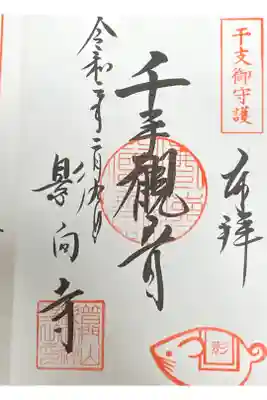 干支御守護
奉拝
千手観音
令和二年二月九日
影向寺
影